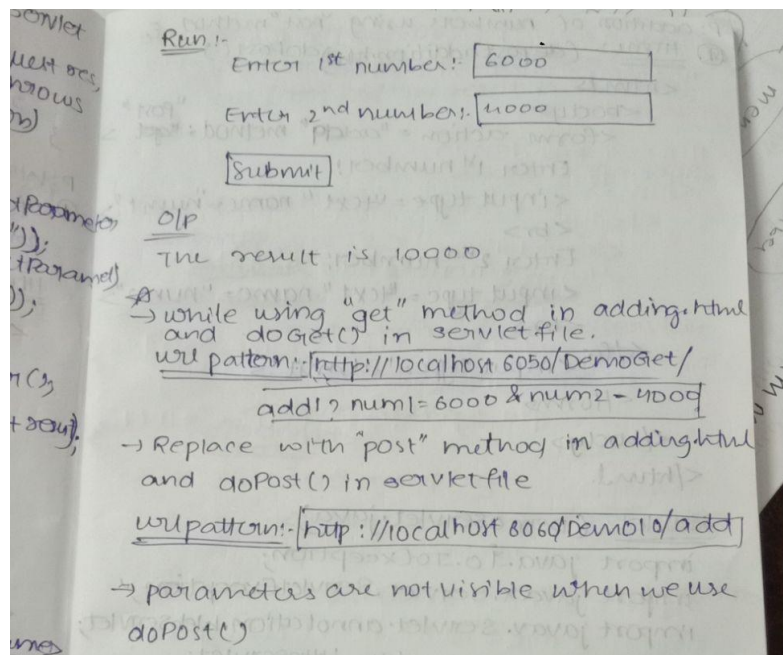 Run :-
Enter 1st number:- 6000
Enter 2nd number:- 4000
Submit
O/P
The result is 10000
→ while using "get" method in adding.html
and doGet() in servlet file.
url pattern:- http://localhost 6050/DemoGet/
add1? num1=6000 & num2 - 4000
→ Replace with "post" method in adding.html
and doPost() in servlet file
url pattern:- http://localhost 8060/Demo10/add
→ parameters are not visible when we use
doPost()